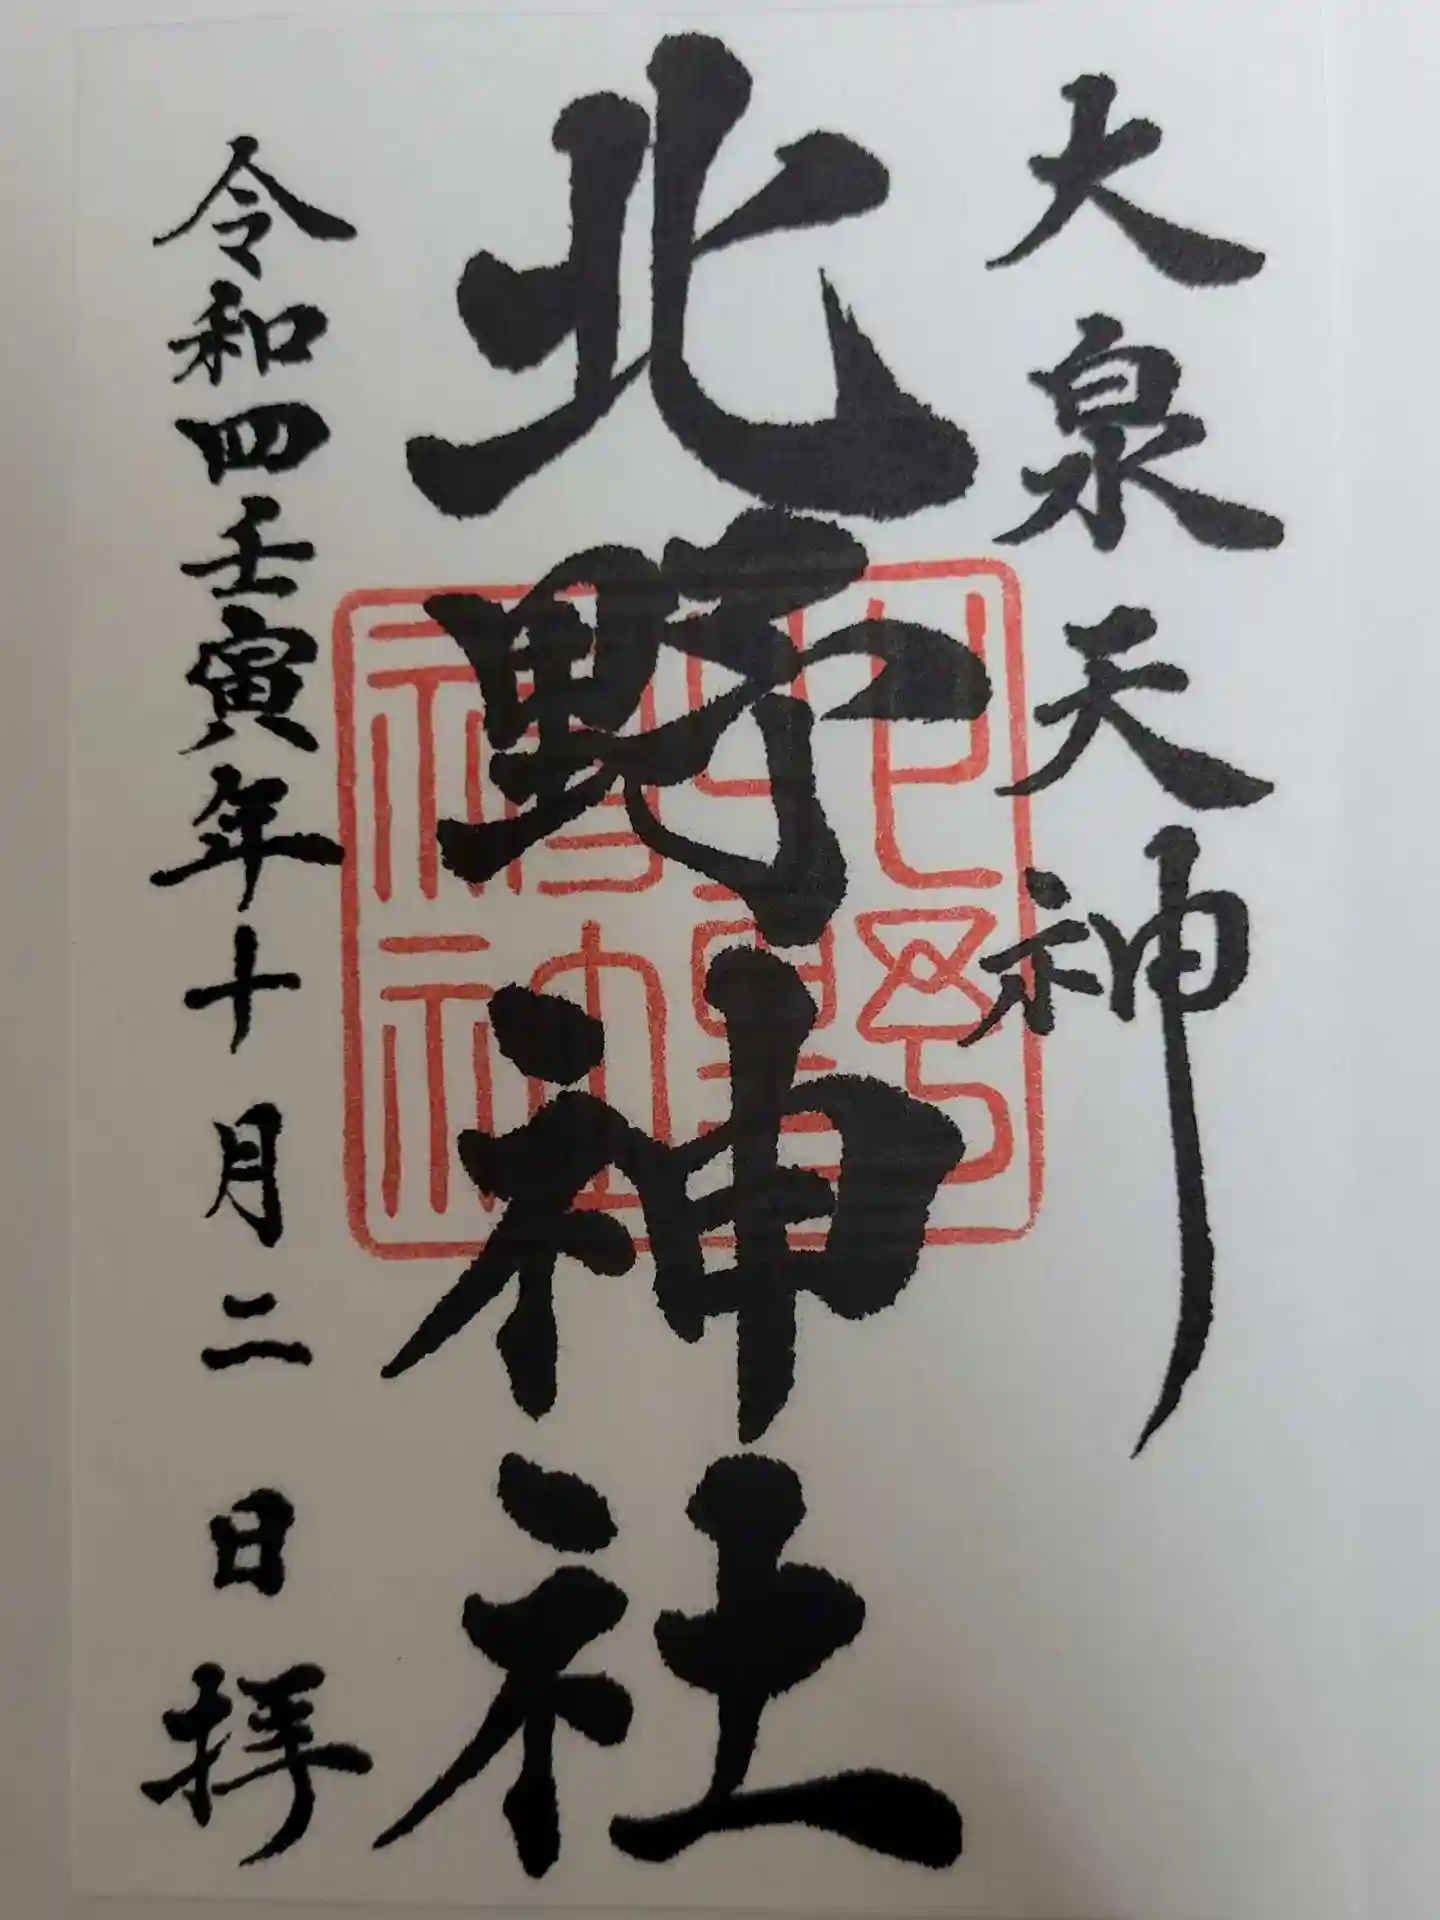 大泉天神
北野神社
令和四壬寅年十月二日拝